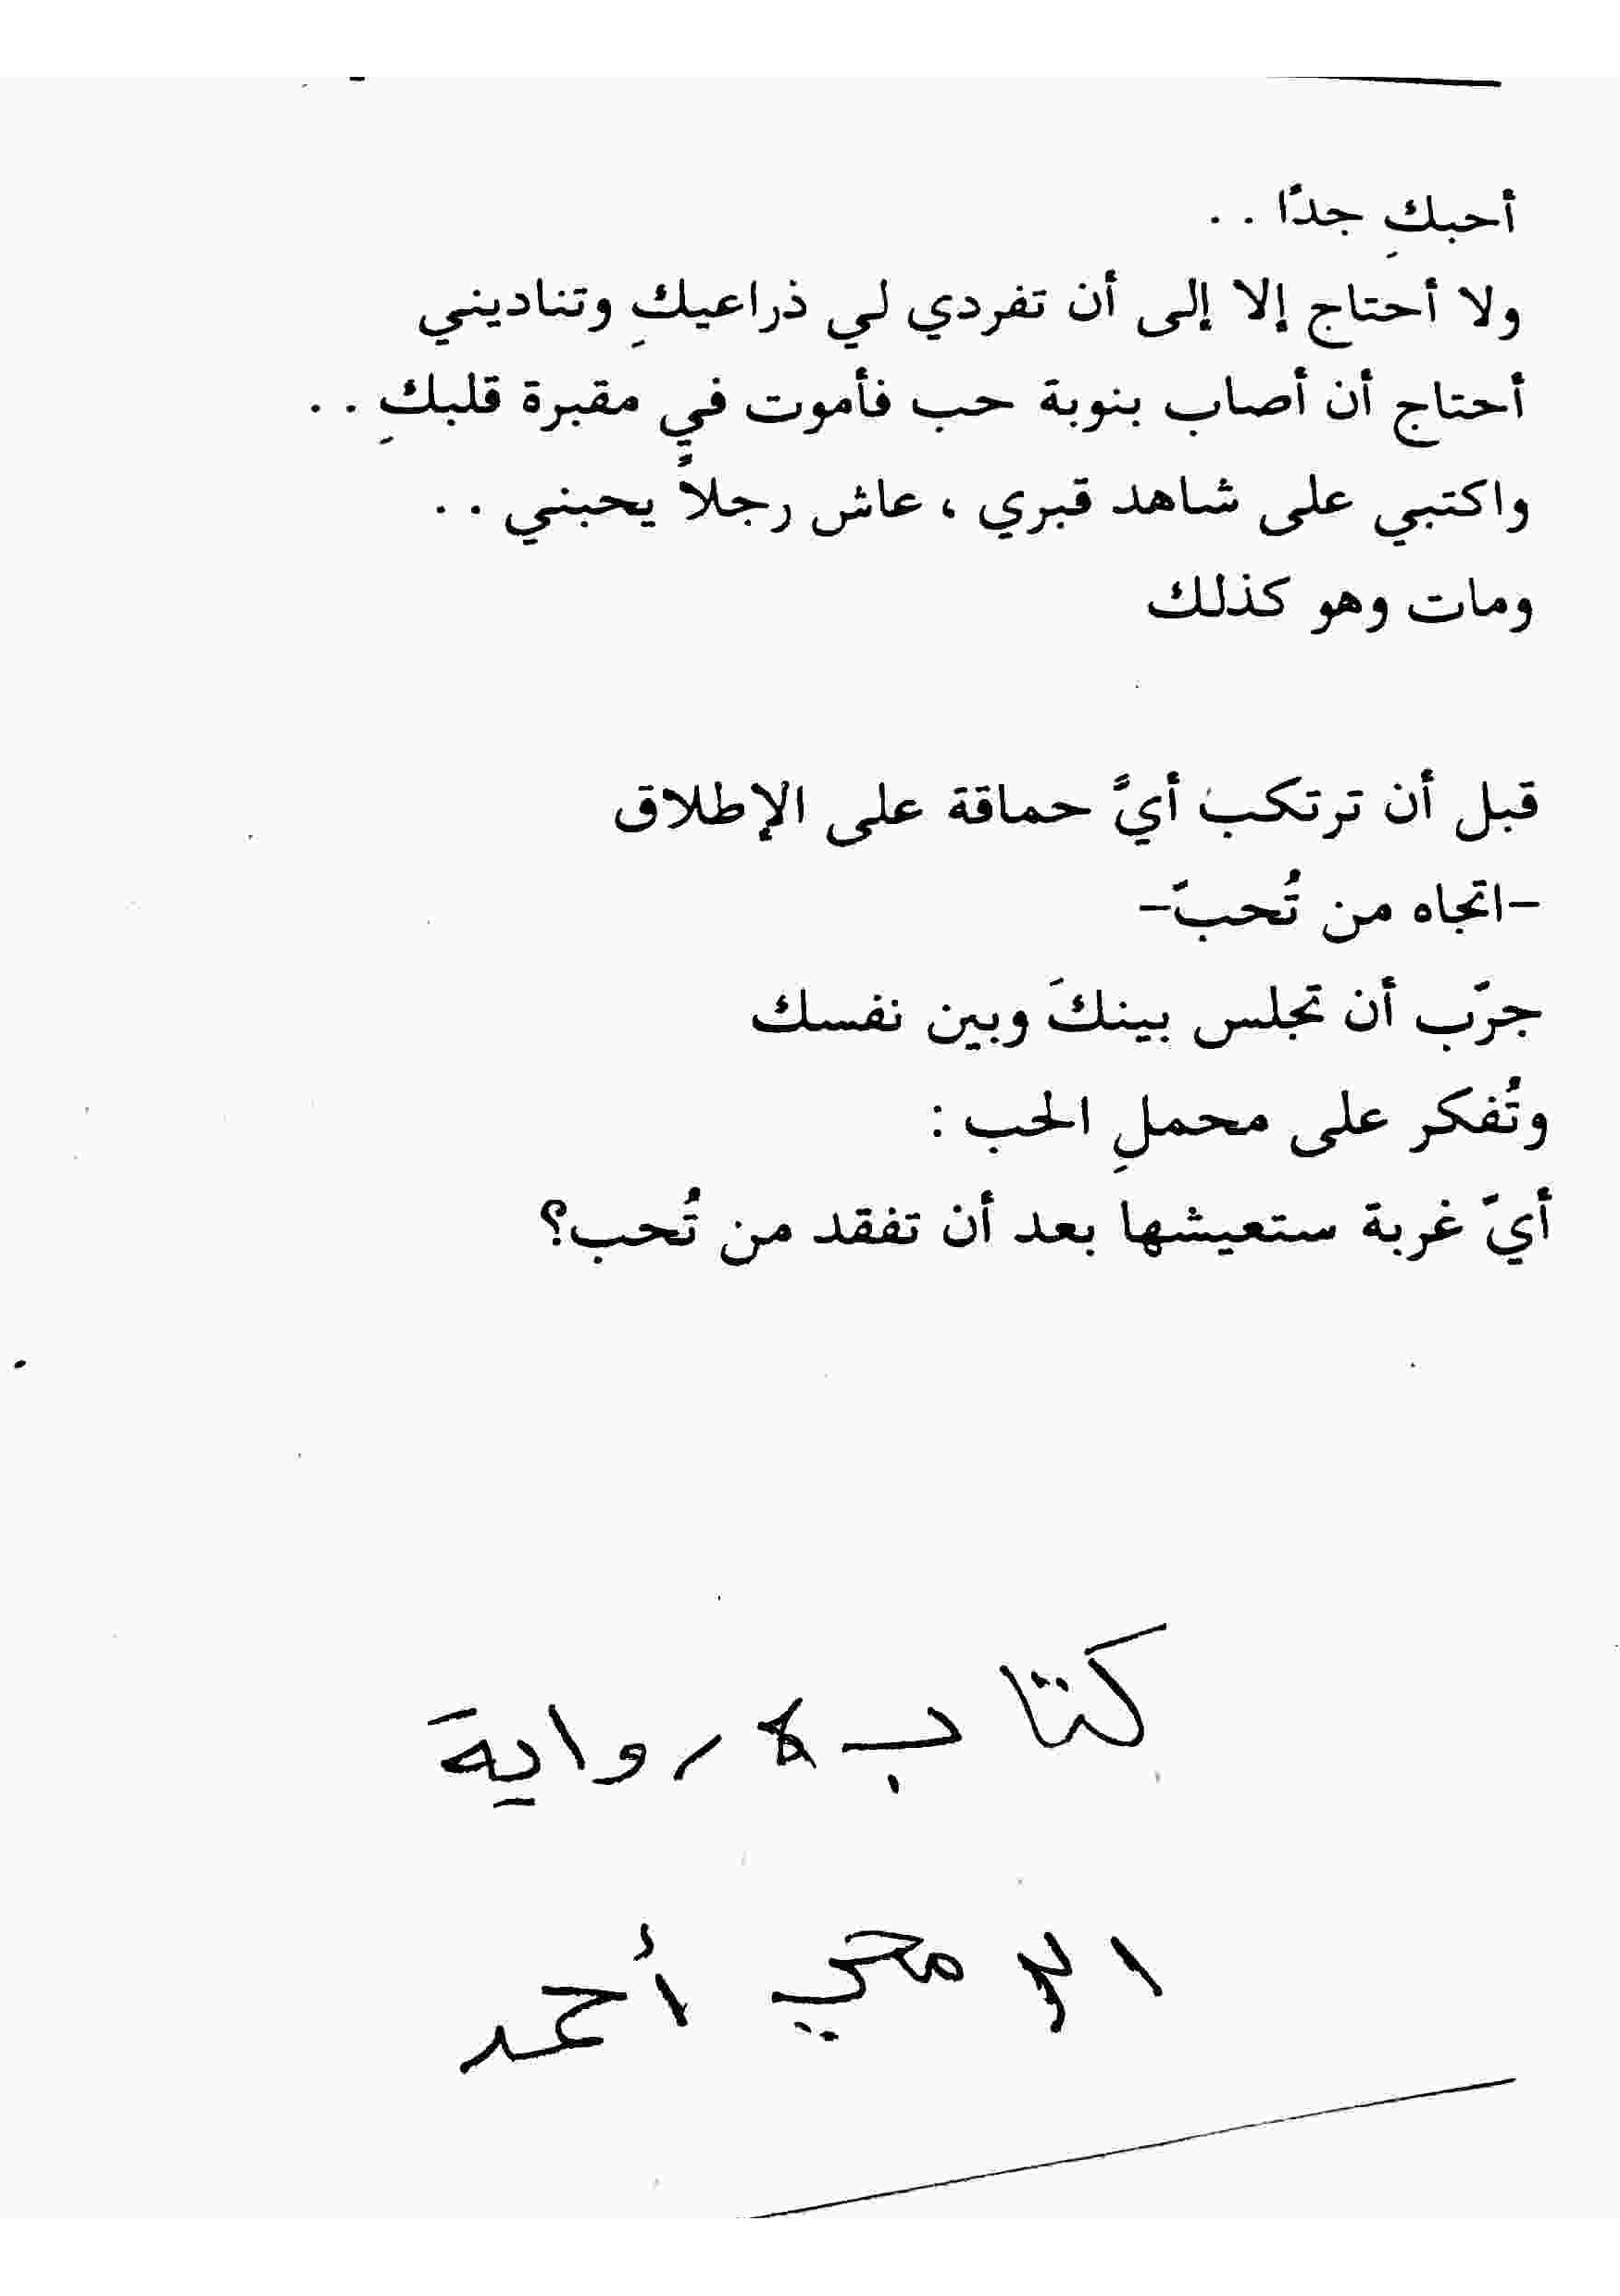 أحبكِ جدًا . .
ولا أحتاج إلا إلى أن تفردي لي ذراعيكِ وتناديني
أحتاج أن أصاب بنوبة حب فأموت في مقبرة قلبكِ . .
واكتبي على شاهد قبري ، عاش رجلاً يحبني . .
ومات وهو كذلك
قبل أن ترتكب أيً حماقة على الإطلاق
-اتجاه من تُحبّ-
جرّب أن تجلس بينكَ وبين نفسك
وتُفكر على محملِ الحب :
أيّ غربة ستعيشها بعد أن تفقد من تُحب؟
كتاب لا رواية
أحمد